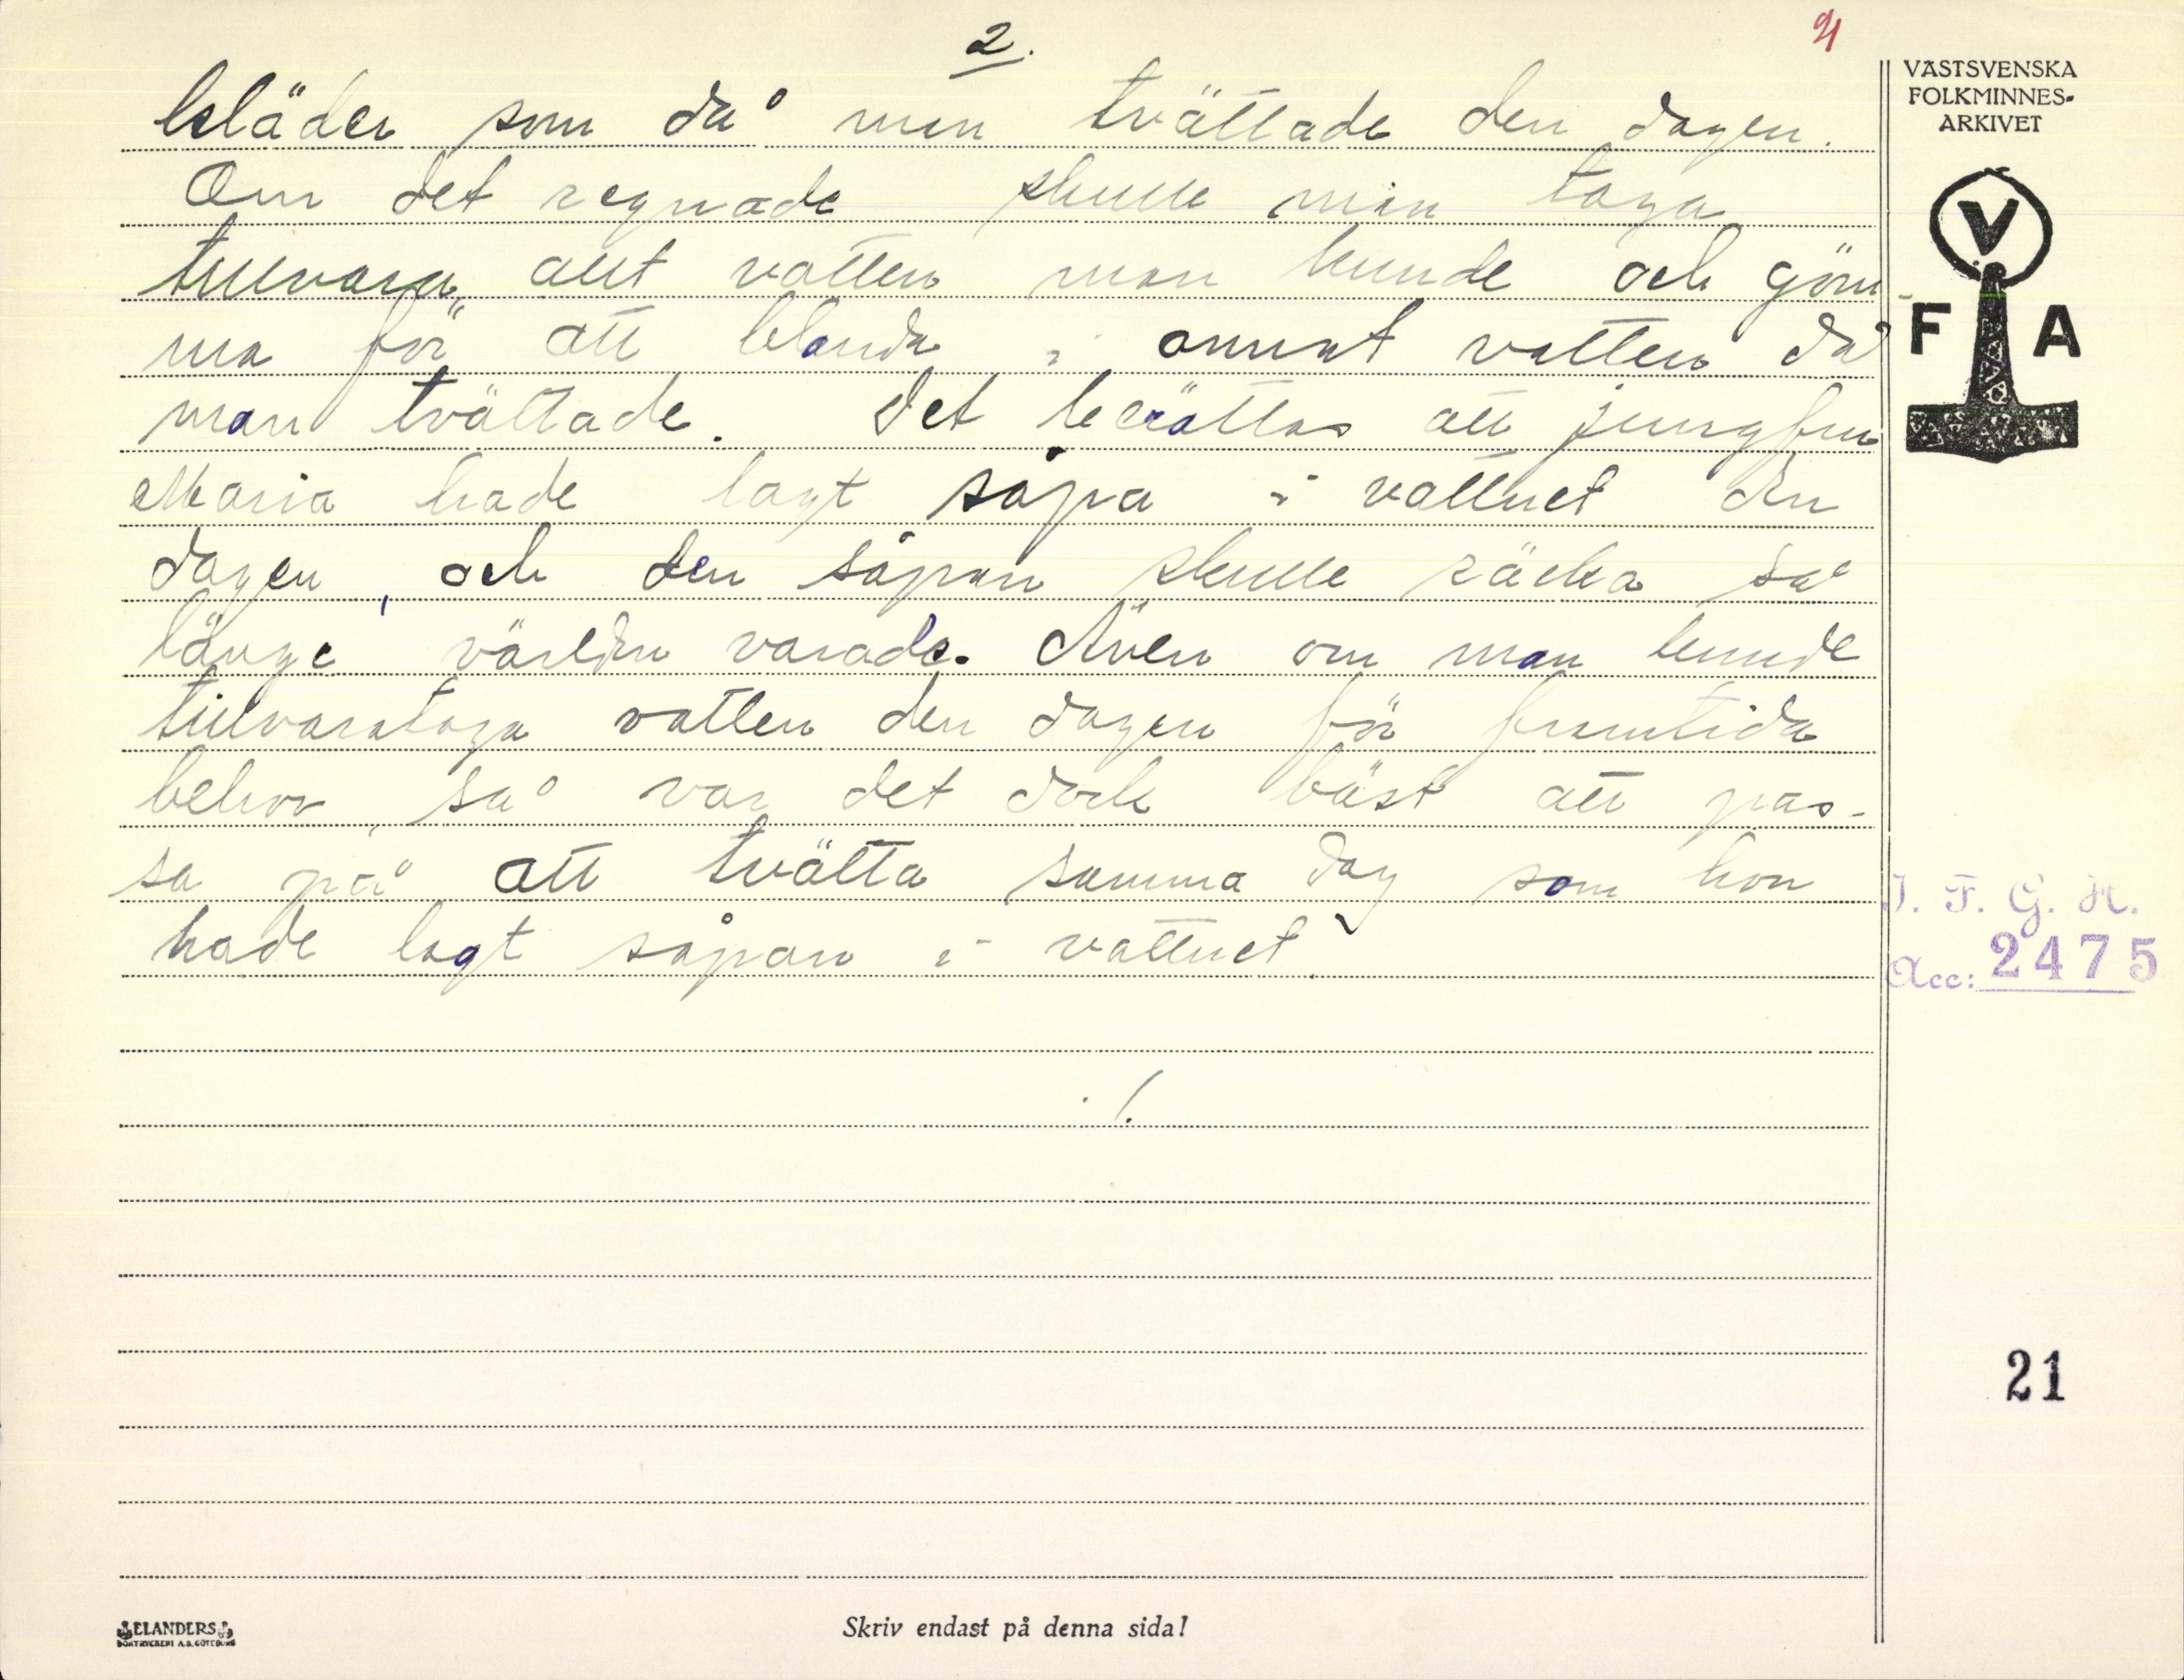 2.
21
VÄSTSVENSKA
FOLKMINNES-
ARKIVET
kläder som då man tvättade den dagen.
Om det regnade skulle man taga
tillvara allt vatten man kunde och göm-
ma för att blanda i annat vatten då
man tvättade. Det berättas att jungfru
Maria hade lagt såpa i vattnet den
dagen, och den såpan skulle räcka så
länge världen varade. Även om man kunde
tillvarataga vatten den dagen för framtida
behov, så var det dock bäst att pas-
sa på att tvätta samma dag som hon
hade lagt såpan i vattnet.
./.
V
F A
I. F. G. H.
Acc: 2475
21
ELANDERS
BOKTRYCKERI A.B. GÖTEBORG
Skriv endast på denna sida!